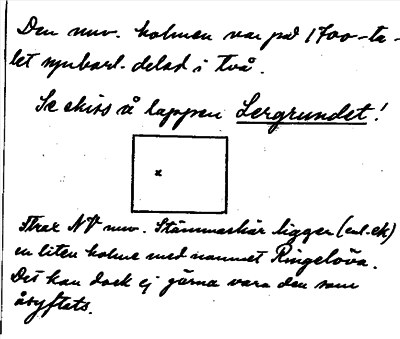 Den nuv. holmen var på 1700-ta-
let synbarl. delad i två.
Se skiss å lappen Lergrundet!
x
Strax NV nuv. Stämmarskär ligger (enl. ek)
en liten holme med namnet Ringelöva.
Det kan dock ej gärna vara den som
åsyftats.